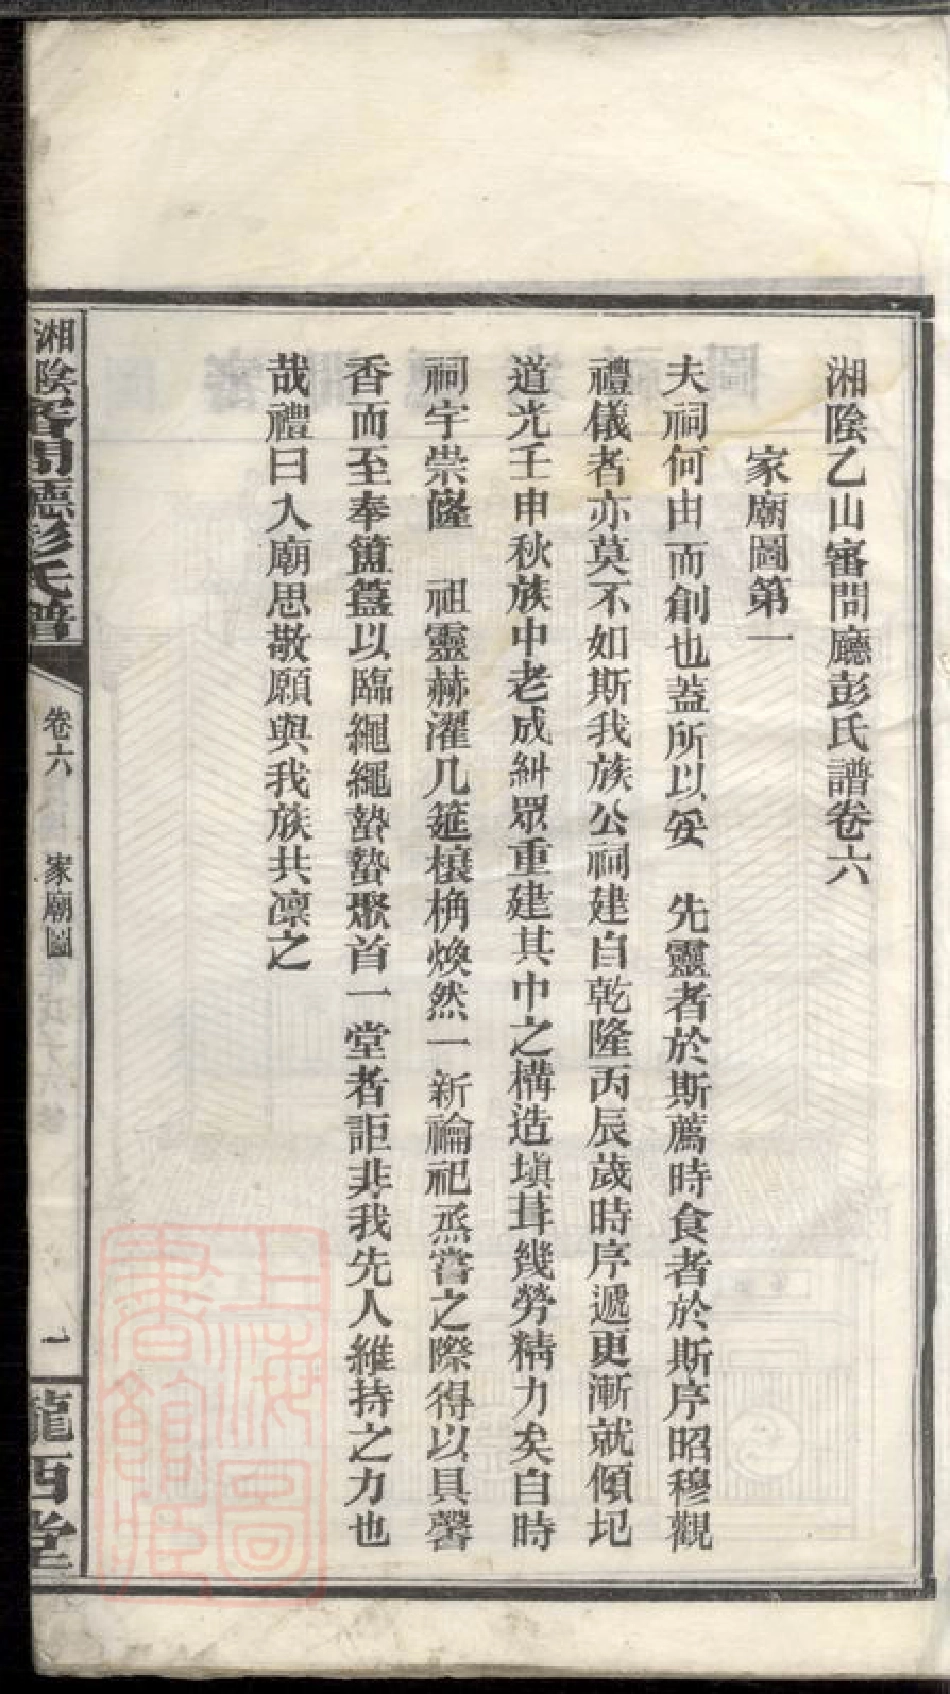 湘陰乙山審問廳彭氏譜卷六
家廟圖第一
夫祠何由而創也蓋所以妥 先靈者於斯薦時食者於斯序昭穆觀
禮儀者亦莫不如斯我族公祠建自乾隆丙辰歲時序遞更漸就傾圮
道光壬申秋族中老成糾眾重建其中之構造塡葺幾勞精力矣自時
祠宇崇隆 祖靈赫濯几筵榱桷煥然一新禴祀烝嘗之際得以具馨
香而至奉簠簋以臨繩繩蟄蟄聚首一堂者詎非我先人維持之力也
哉禮曰入廟思敬願與我族共凛之
湘陰審問廳彭氏譜
卷六 家廟圖
一
龍西堂
上海圖
書館藏